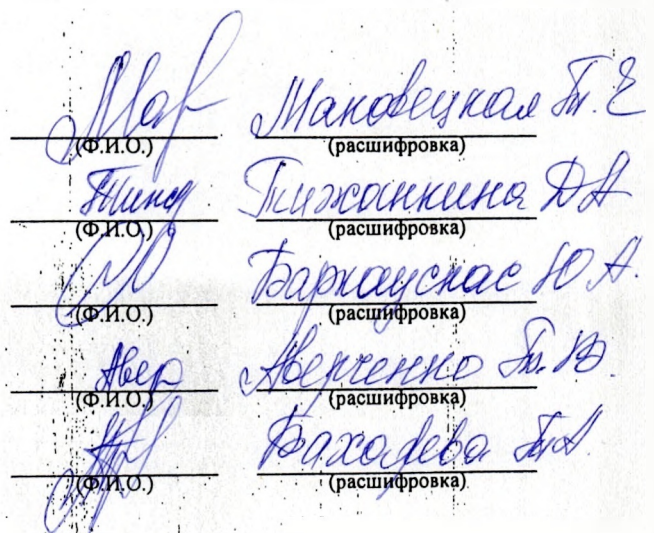 Мак Маковецкая Т. Е
(Ф.И.О.) (расшифровка)
Тинж Тижанкина Д А
(Ф.И.О.) (расшифровка)
Баркаускас Ю А.
(Ф.И.О.) (расшифровка)
Авер Аверченко Т. В.
(Ф.И.О.) (расшифровка)
Т А.
(Ф.И.О.) (расшифровка)